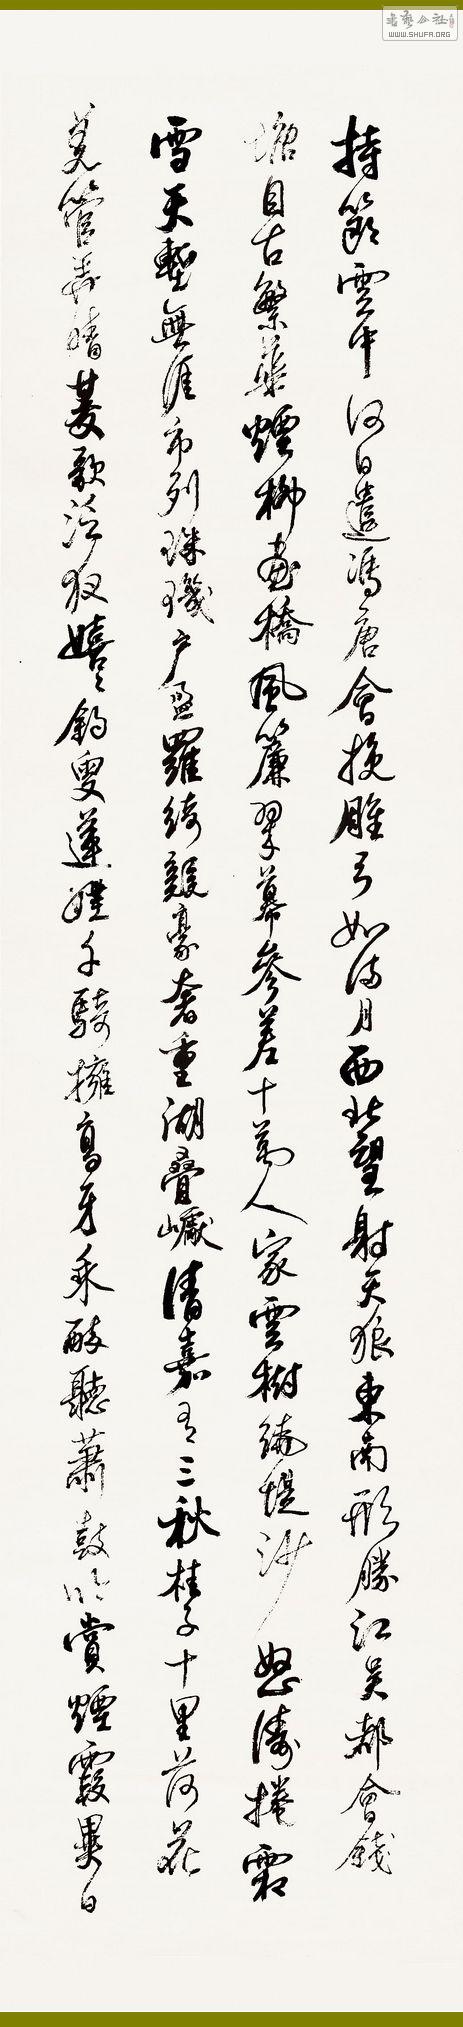 書藝公社
WWW.SHUFA.ORG
持節雲中何日遣馮唐會挽雕弓如滿月西北望射天狼東南形勝江吳都會錢
塘自古繁華煙柳畫橋風簾翠幕參差十萬人家雲樹繞堤沙怒濤捲霜
雪天塹無涯市列珠璣戶盈羅綺競豪奢重湖疊巘清嘉有三秋桂子十里荷花
羌管弄晴菱歌泛夜嬉嬉釣叟蓮娃千騎擁高牙乘醉聽蕭鼓吟賞煙霞異日